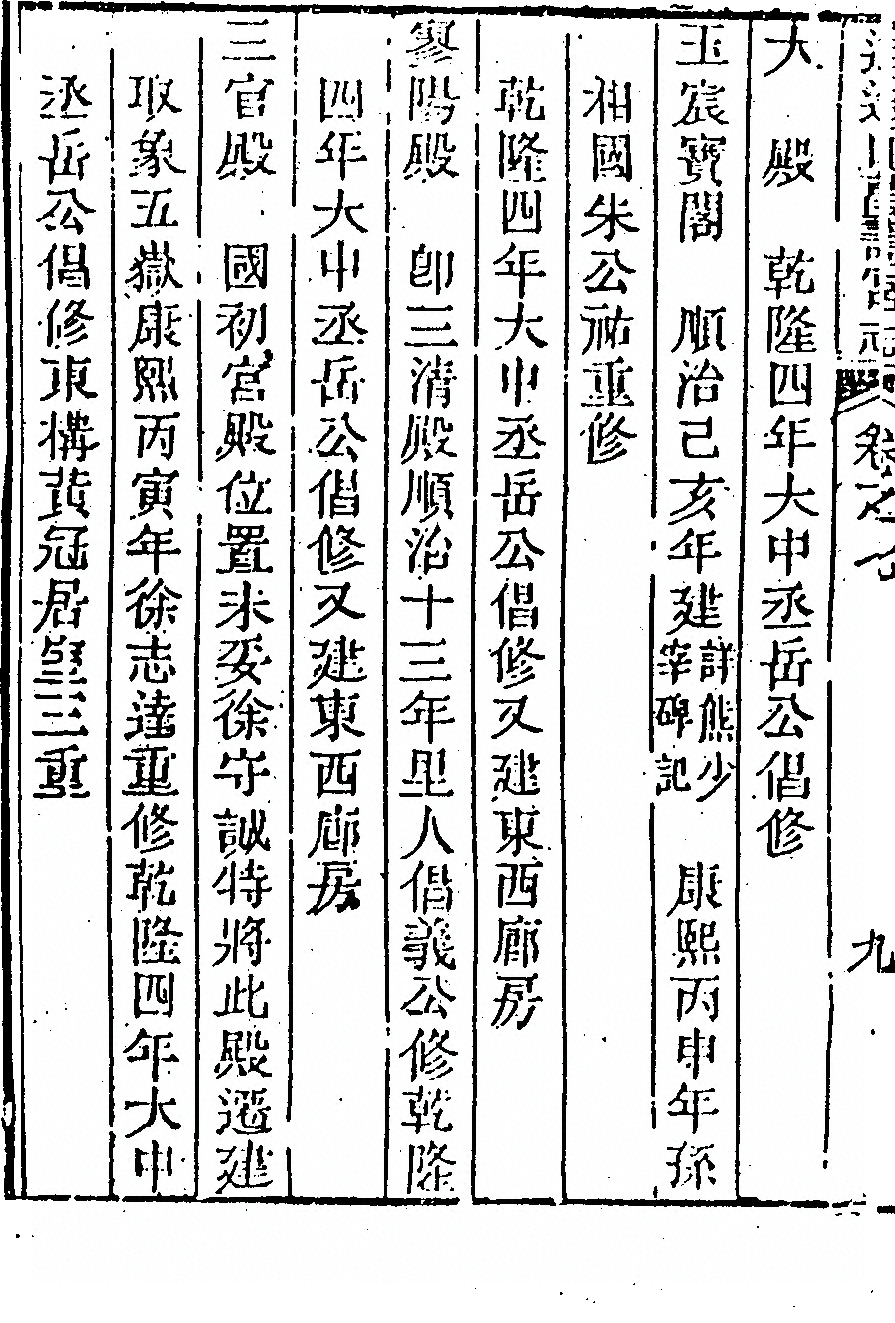 卷之
九
大殿　乾隆四年大中丞岳公倡修
玉宸寶閣　順治己亥年建詳熊少宰碑記　康熙丙申年孫
相國朱公祐重修
乾隆四年大中丞岳公倡修又建東西廊房
寥陽殿　卽三清殿順治十三年里人倡義公修乾隆
四年大中丞岳公倡修又建東西廊房
三官殿　國初宮殿位置未妥徐守誠特將此殿遷建
取象五嶽康熙丙寅年徐志達重修乾隆四年大中
丞岳公倡修東構黃冠居室三重